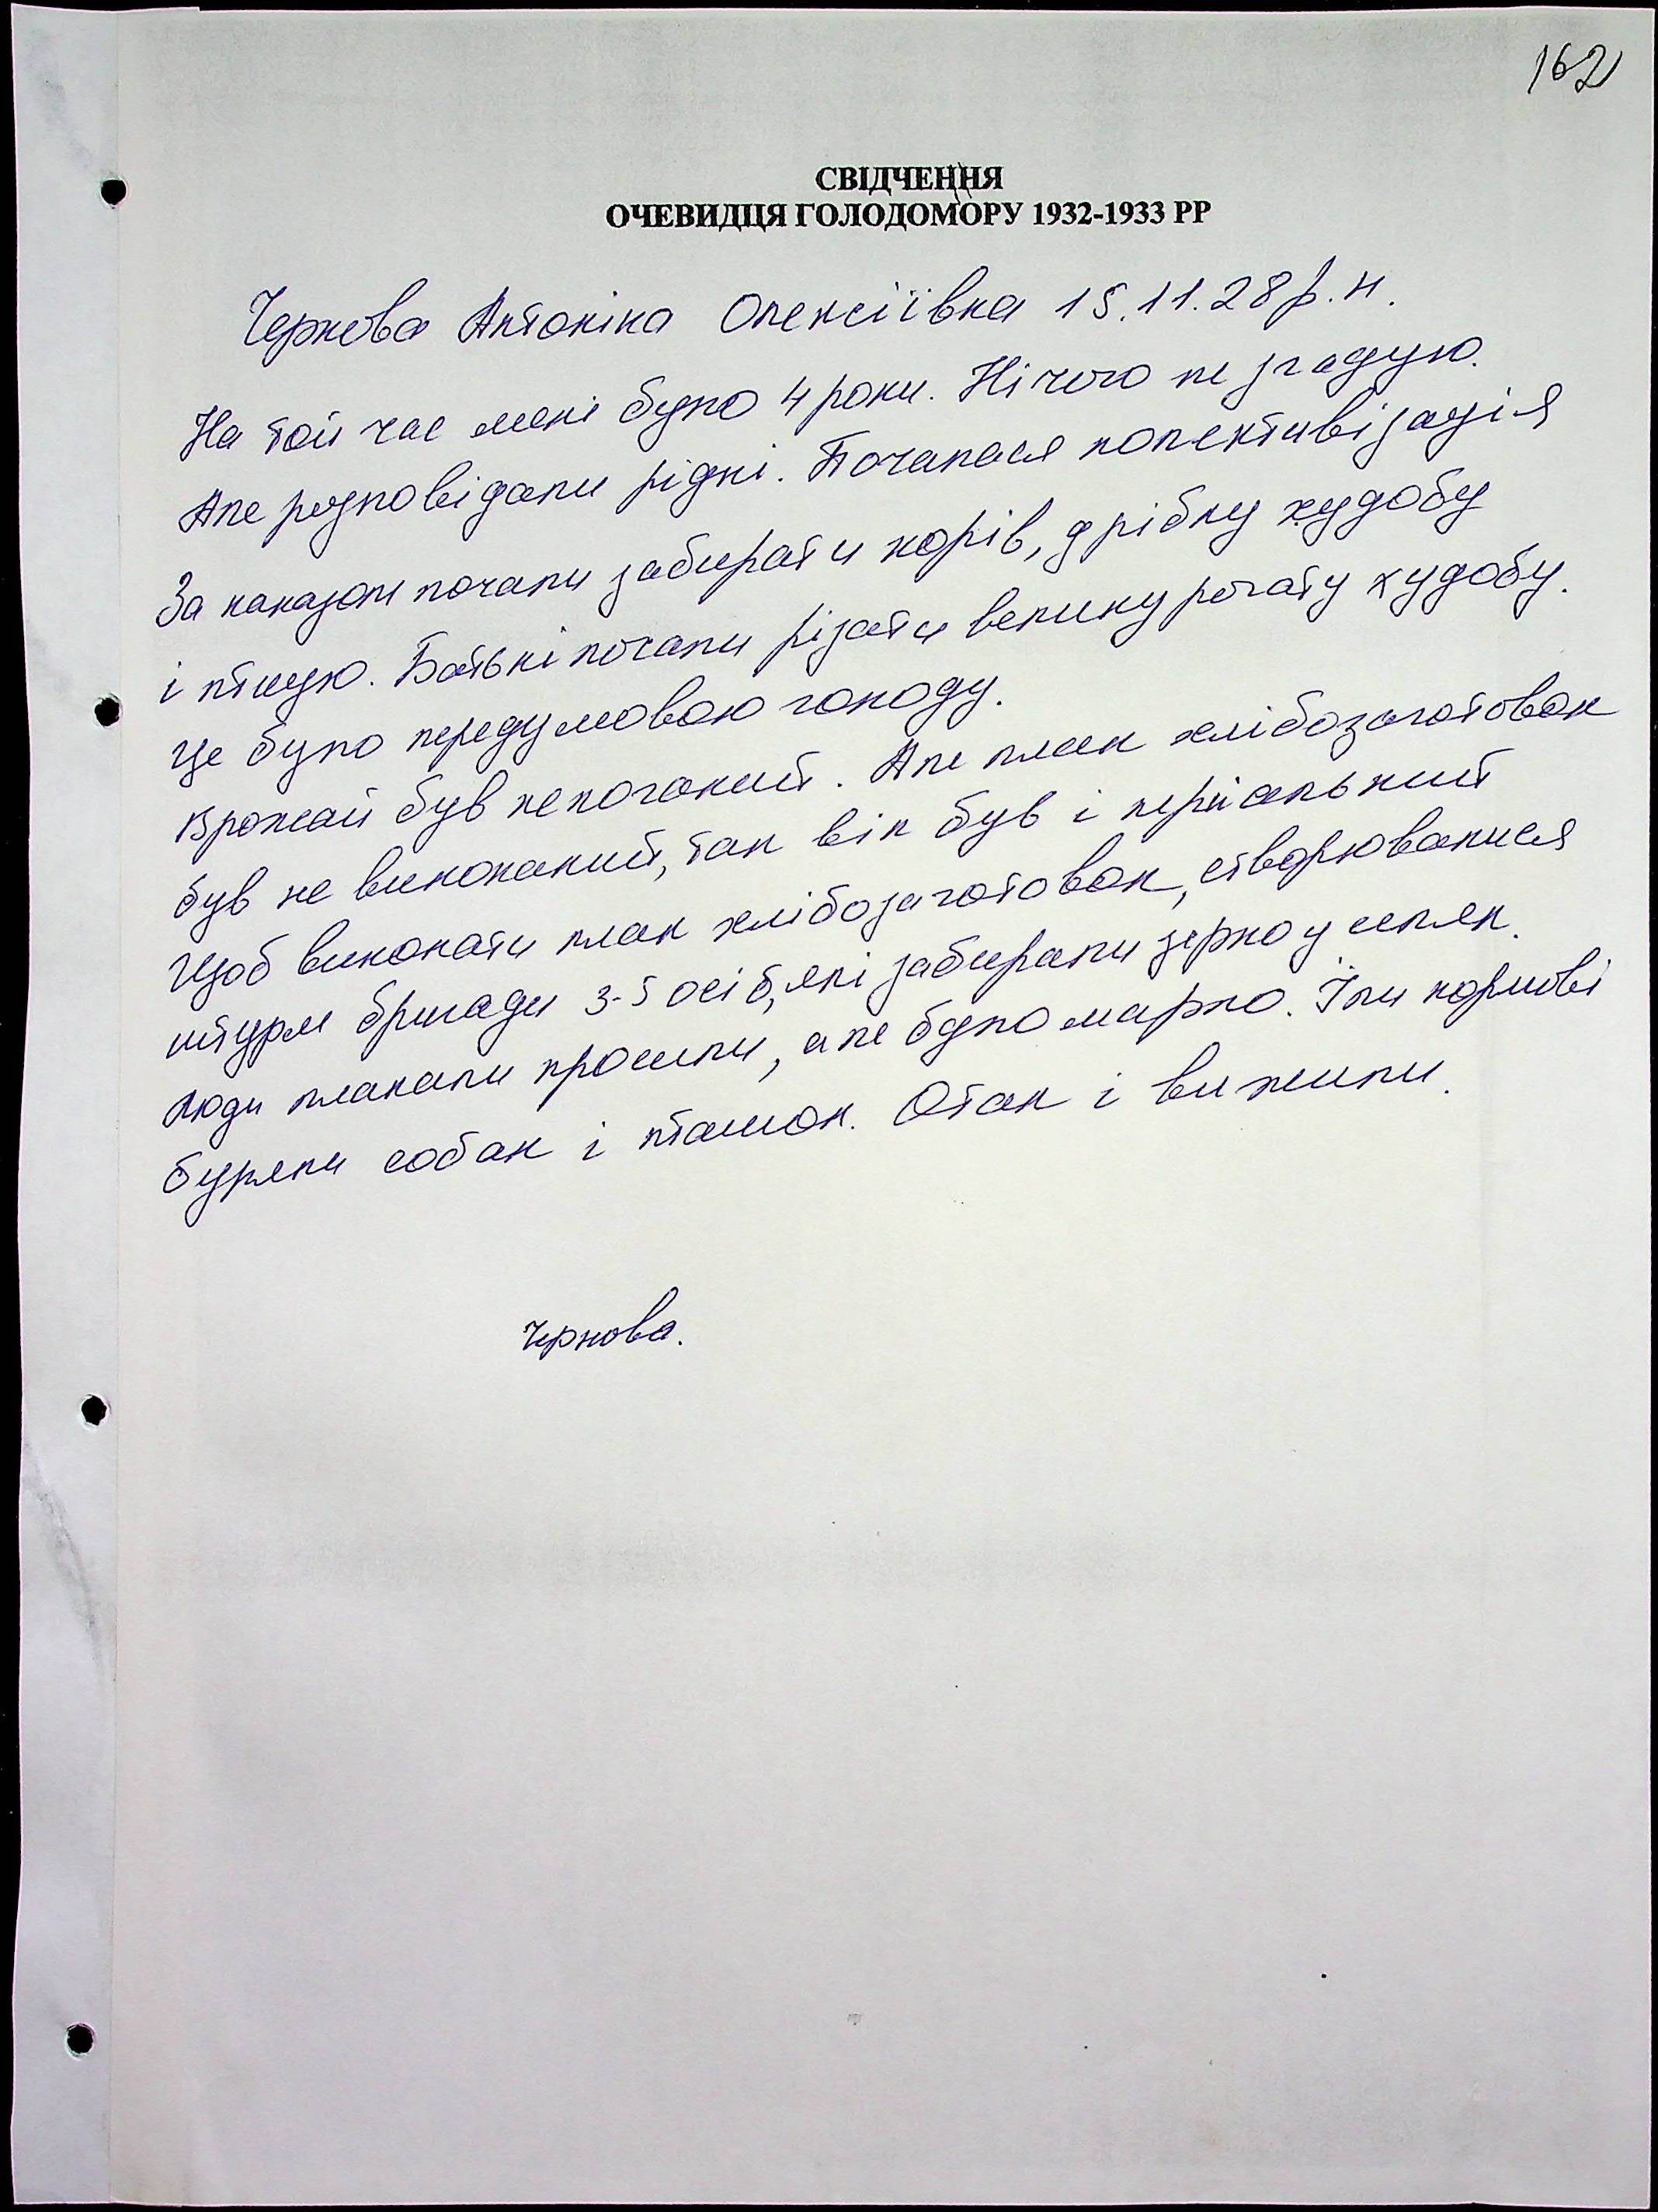 162
СВІДЧЕННЯ
ОЧЕВИДЦЯ ГОЛОДОМОРУ 1932-1933 РР
Чернова Антоніна Олексіївна 15.11.28 р.н.
На той час мені було 4 роки. Нічого не згадую.
Але розповідали рідні. Почалася колективізація
За наказом почали забирати корів, дрібну худобу
і птицю. Батьки почали різати велику рогату худобу.
Це було передумовою голоду.
Врожай був непоганий. Але план хлібозаготовок
був не виконаний, так він був і
Щоб виконати план хлібозаготовок, створювалися
штурм бригади 3-5 осіб, які забирали зерно у селян.
Люди плакали просили, але було марно. Їли кормові
буряки собак і пташок. Отак і вижили.
Чернова.